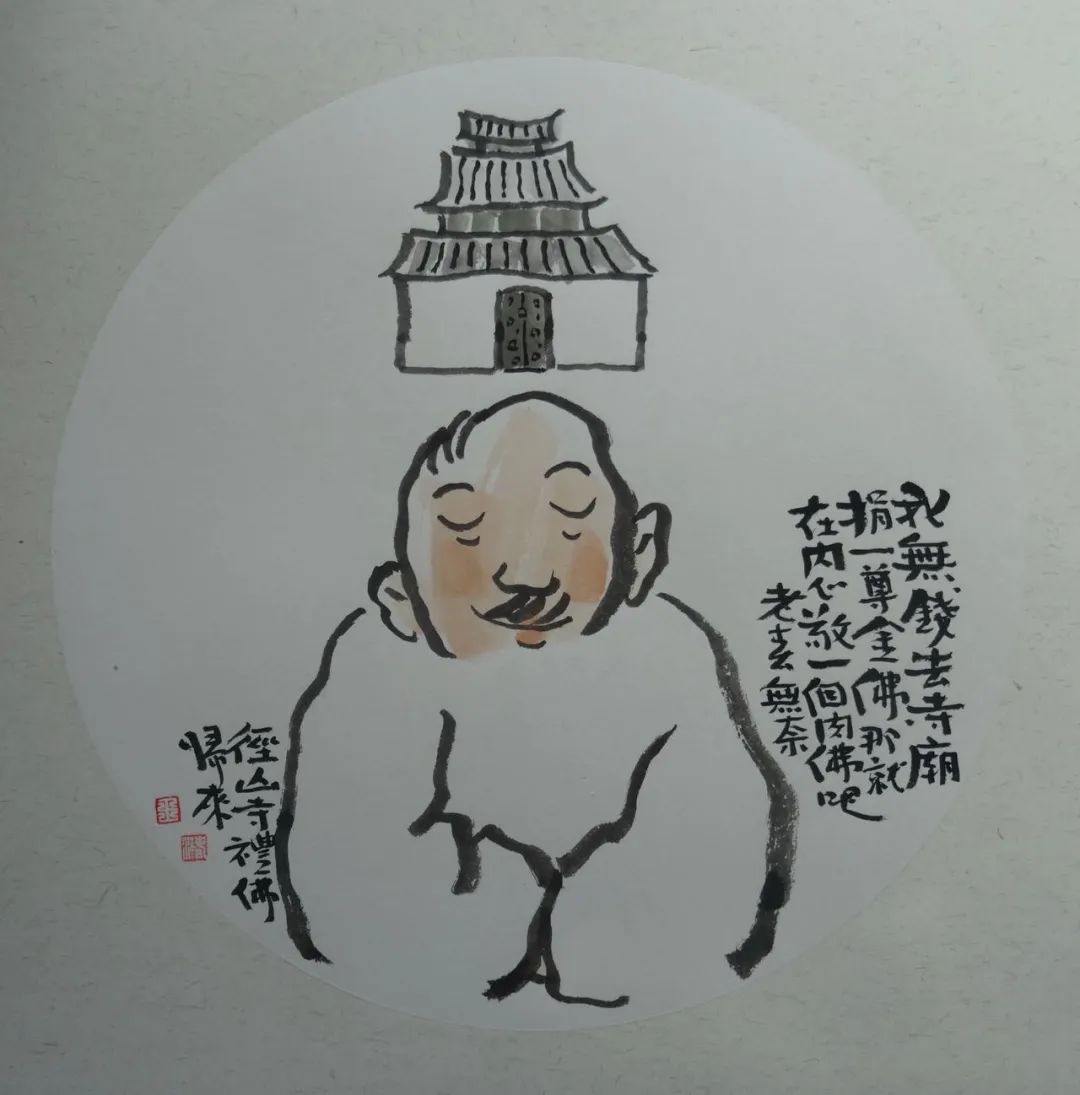 我無錢去寺廟
捐一尊金佛那就
在内心敬一個肉佛吧
老 無奈
徑山寺禮佛
帰來